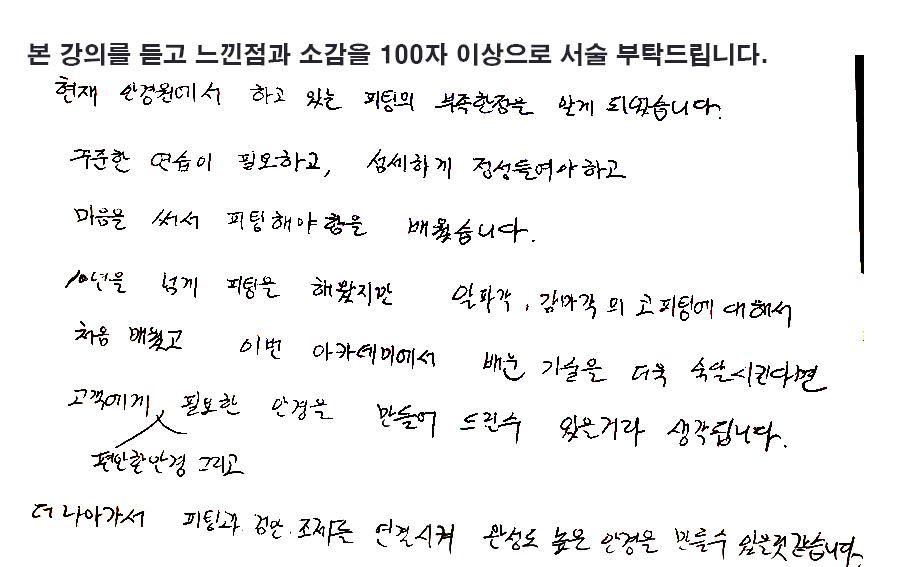 본 강의를 듣고 느낀점과 소감을 100자 이상으로 서술 부탁드립니다.
현재 안경원에서 하고 있는 피팅의 부족한점을 알게 되었습니다.
꾸준한 연습이 필요하고, 섬세하게 정성들여야하고
마음을 써서 피팅해야함을 배웠습니다.
10년을 넘게 피팅을 해왔지만 알파각, 감마각의 코피팅에 대해서
처음 배웠고 이번 아카데미에서 배운 기술을 더욱 숙달시킨다면
고객에게 필요한 안경을 만들어 드릴수 있을거라 생각됩니다.
편안한안경 그리고
더 나아가서 피팅과 검안.조제를 연결시켜 완성도 높은 안경을 만들수 있을것같습니다.